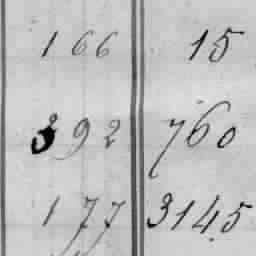 166 15
392 760
177 3145